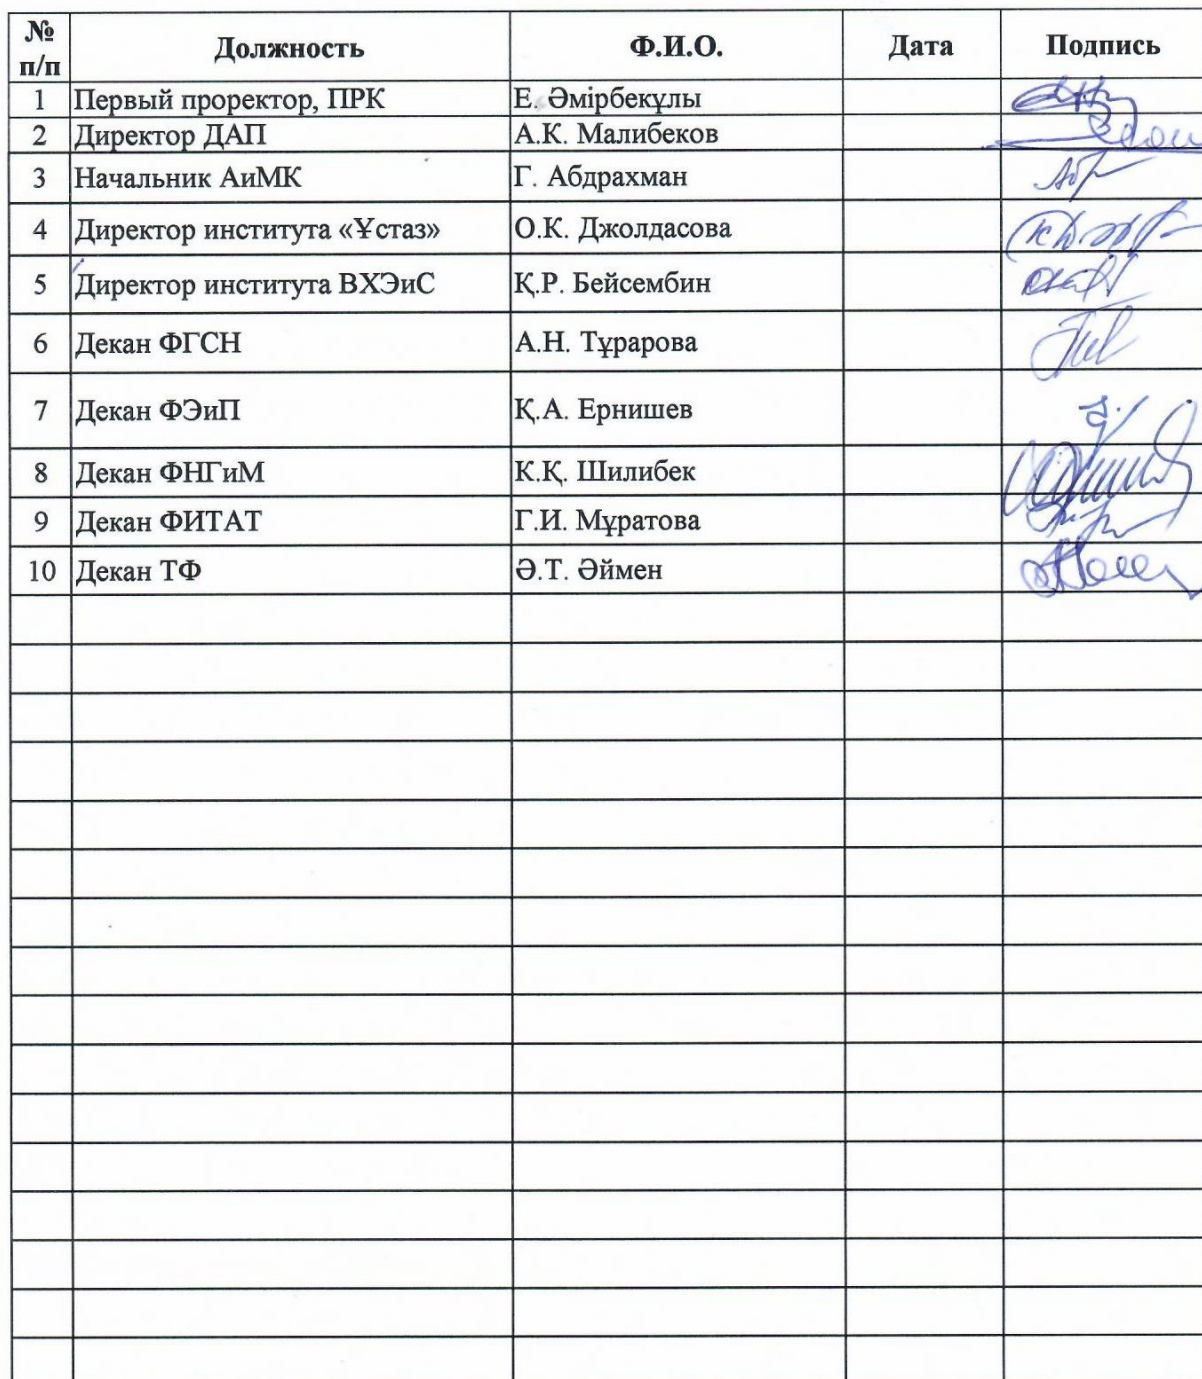 № п/п Должность Ф.И.О. Дата Подпись
1 Первый проректор, ПРК Е. Әмірбекұлы
2 Директор ДАП А.К. Малибеков
3 Начальник АиМК Г. Абдрахман
4 Директор института «Ұстаз» О.К. Джолдасова
5 Директор института ВХЭиС Қ.Р. Бейсембин
6 Декан ФГСН А.Н. Тұрарова
7 Декан ФЭиП Қ.А. Ернишев
8 Декан ФНГиМ К.Қ. Шилибек
9 Декан ФИТАТ Г.И. Мұратова
10 Декан ТФ Ә.Т. Әймен